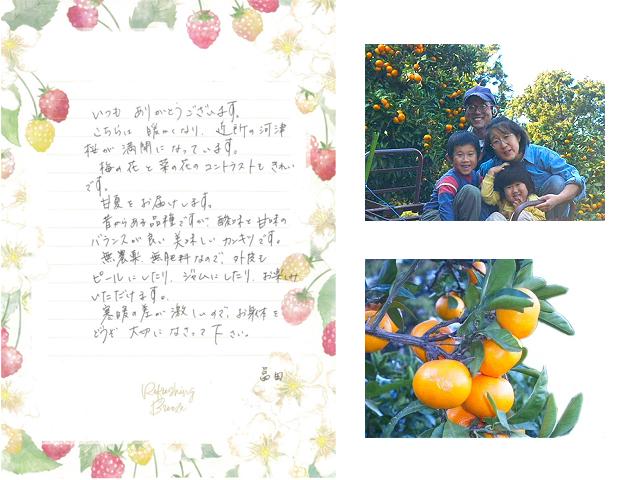 いつも ありがとうございます。
こちらは 暖かくなり、近所の河津
桜が満開になっています。
梅の花と菜の花のコントラストもきれい
です。
甘夏をお届けします。
昔からある品種ですが、酸味と甘味の
バランスが良い美味しいカンキツです。
無農薬、無肥料なので、外皮も
ピールにしたり、ジャムにしたり、お楽しみ
いただけます。
寒暖の差が激しいので、お身体を
どうぞ 大切になさって下さい。
冨田
Refreshing
Breeze